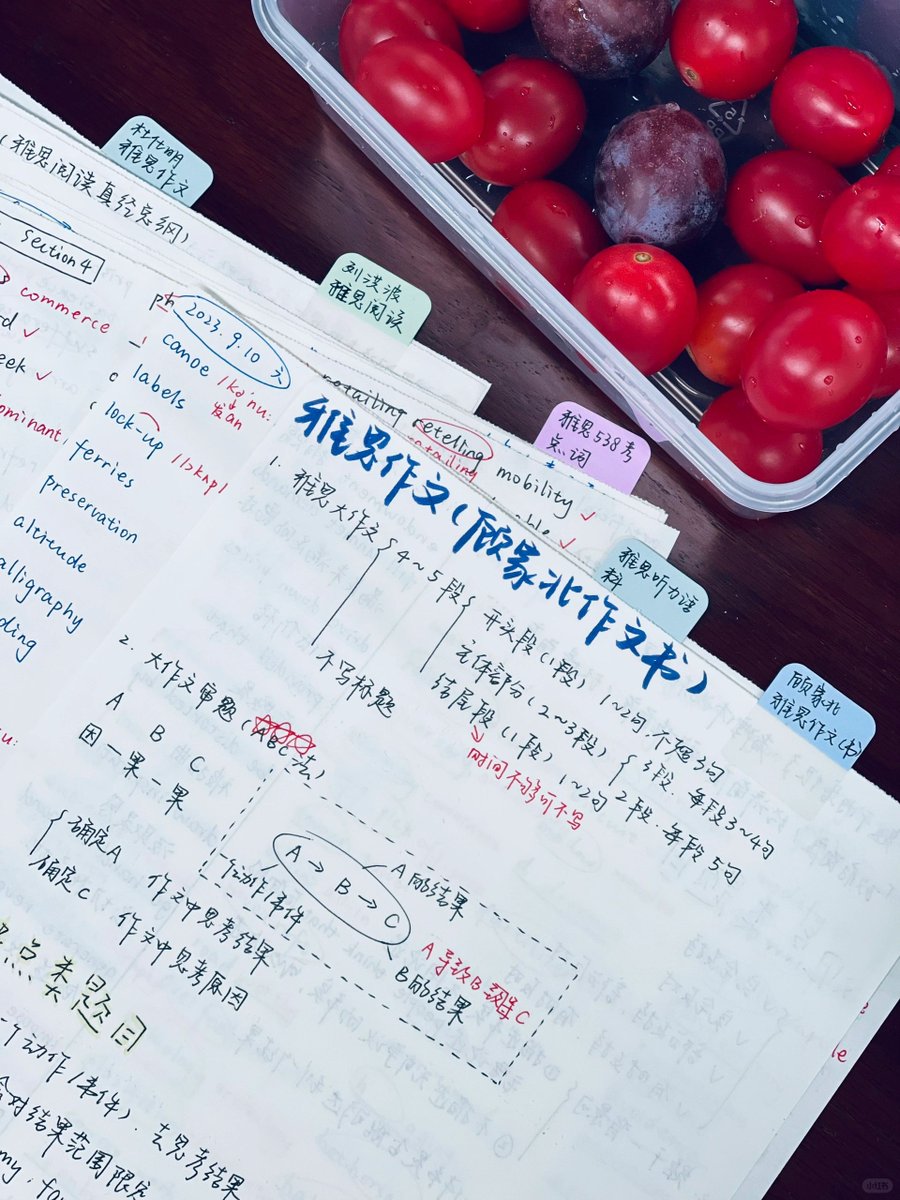 杜仕明
雅思作文
(雅思阅读真经总纲)
刘洪波
雅思阅读
雅思538考
点词
雅思听力语
料
顾家北
雅思作文(书)
Section 4
commerce
2023.9.10 六
canoe /kə'nu:
labels
发音
lock-up
/lɔkʌp/
ferries
preservation
altitude
alligraphy
ding
eek ✓
ominant
retailing retelling
retailing
mobility ✓
雅思作文(顾家北作文书)
1. 雅思大作文
4~5段
不写标题
开头段(1段) 1~2句,不超3句
主体部分(2~3段)
3段.每段3~4句
2段.每段5句
结尾段(1段) 1~2句
时间不够可不写
2. 大作文审题(ABC法)
A B C
因—果—果
确定A 作文中思考结果
确定C 作文中思考原因
A→B→C
A的结果
个动作/事件
B的结果
A导致B导致C
点类题目
个动作/事件),去思考结果
对结果范围限定
my, fo
小红书